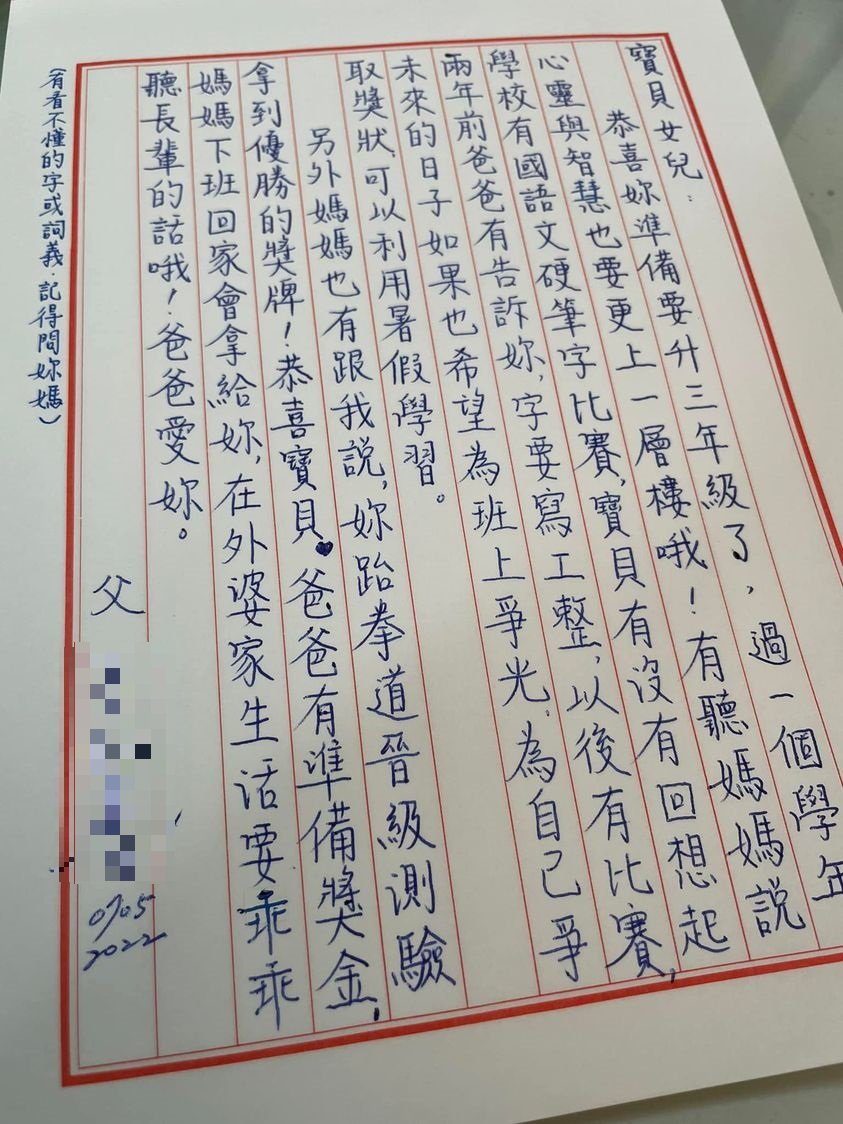 寶貝女兒：
恭喜妳準備要升三年級了，過一個學年
心靈與智慧也要更上一層樓哦！有聽媽媽說
學校有國語文硬筆字比賽，寶貝有沒有回想起
兩年前爸爸有告訴妳，字要寫工整，以後有比賽，
未來的日子如果也希望為班上爭光，為自己爭
取獎狀，可以利用暑假學習。
另外媽媽也有跟我說，妳跆拳道晉級測驗
拿到優勝的獎牌！恭喜寶貝♥爸爸有準備獎金，
媽媽下班回家會拿給妳，在外婆家生活要乖乖
聽長輩的話哦！爸爸愛妳。
父
07.05
2022
（有看不懂的字或詞義．記得問妳媽）